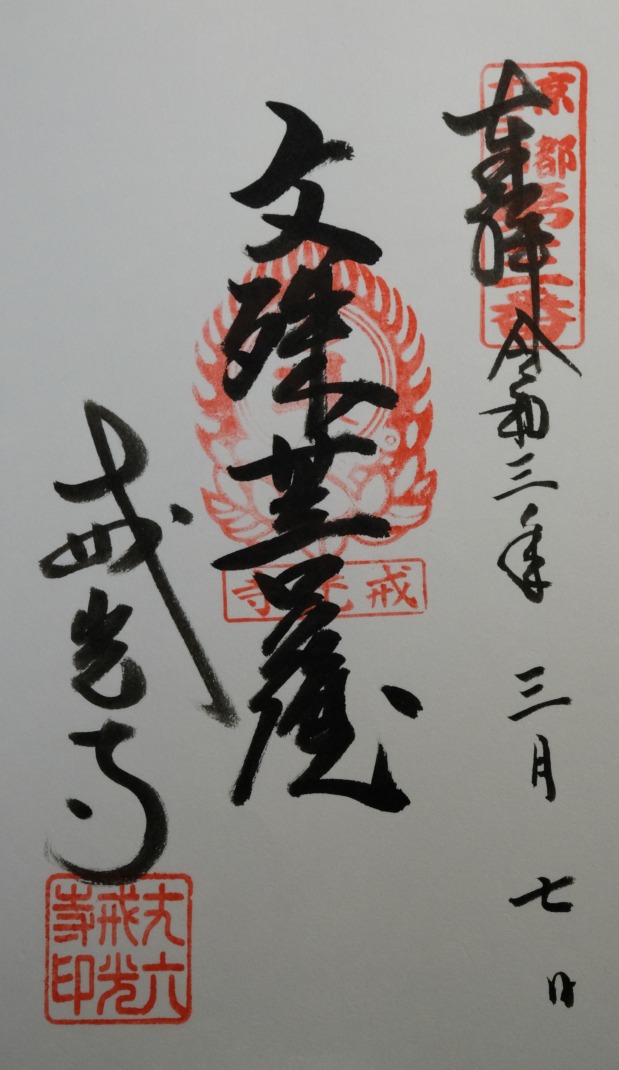 奉拝 令和三年 三月 七日
京都
第十番
文殊菩薩
戒光寺
戒光寺
丈六
戒光
寺印